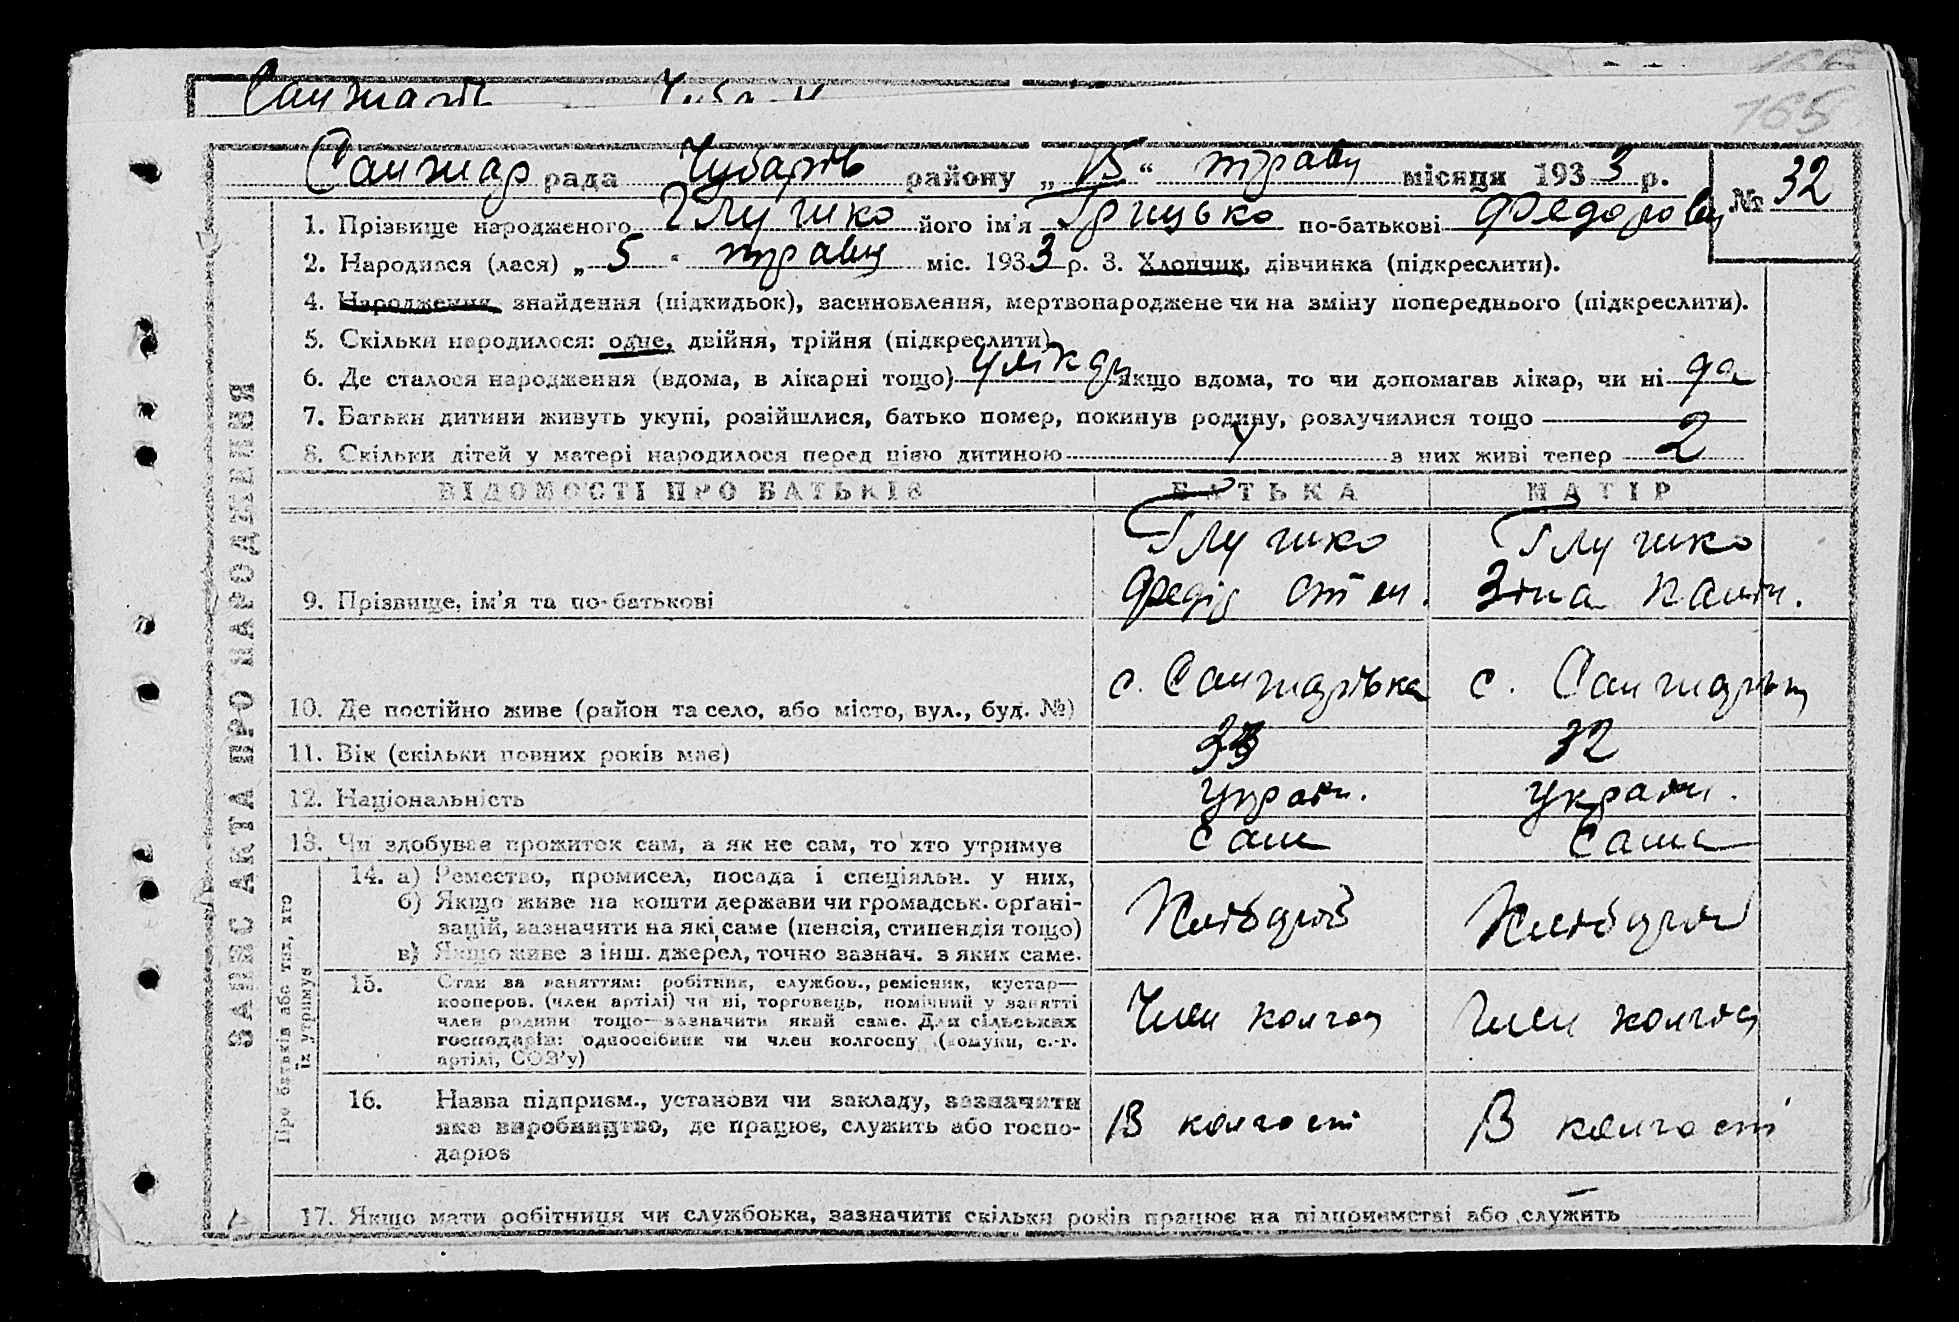 Санжарів
165
Санжар рада Чубарів району „15“ травня місяця 1933 р. № 32
1. Прізвище народженого Глушко його ім'я Грицько по-батькові Федорович
2. Народився (лася) „5“ травня міс. 1933 р. 3. Хлопчик, дівчинка (підкреслити).
4. Народження, знайдення (підкидьок), засиновлення, мертвонароджене чи на зміну попереднього (підкреслити).
5. Скільки народилося: одне, двійня, трійня (підкреслити)
6. Де сталося народження (вдома, в лікарні тощо) Якщо вдома, то чи допомагав лікар, чи ні да
7. Батьки дитини живуть укупі, розійшлися, батько помер, покинув родину, розлучилися тощо
8. Скільки дітей у матері народилося перед цією дитиною з них живі тепер 2
ВІДОМОСТІ ПРО БАТЬКІВ БАТЬКА МАТІР
Глушко Глушко
9. Прізвище, ім'я та по-батькові Федір Степ. Зіна
10. Де постійно живе (район та село, або місто, вул., буд. №) с. Санжарівка с.
11. Вік (скільки повних років має) 33 32
12. Національність Україн. Україн.
13. Чи здобуває прожиток сам, а як не сам, то хто утримує Сам Сама
14. а) Ремество, промисел, посада і спеціяльн. у них,
б) Якщо живе на кошти держави чи громадськ. орґані-
зацій, зазначити на які саме (пенсія, стипендія тощо) Хлібороб Хлібороб
в) Якщо живе з інш. джерел, точно зазнач. з яких саме.
15. Стан за заняттям: робітник, службов., ремісник, кустар—
кооперов. (член артілі) чи ні, торговець, помічний у занятті
член родини тощо—зазначити який саме. Для сільських Член колгос Член колгос
господарів: одноосібник чи член колгоспу (комуни, с.-г.
артілі, СОЗ'у)
16. Назва підприєм., установи чи закладу, зазначити
яке виробництво, де працює, служить або госпо- В колгоспі В колгоспі
дарює
17. Якщо мати робітниця чи службовка, зазначити скільки років працює на підприємстві або служить —
ЗАПИС АКТА ПРО НАРОДЖЕННЯ
Про батьків або тих, хто
їх утримує